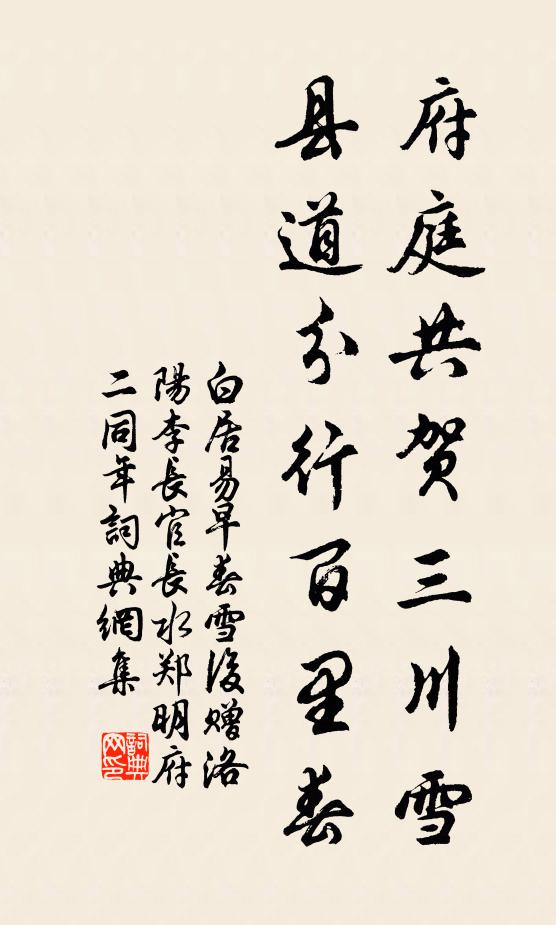 府庭共贺三川雪
县道分行百里春
白居易早春雪後赠洛
陽李長官長水郑明府
二同年詞典網集
詞典网印